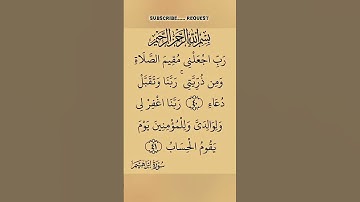 SUBSCRIBE.... REQUEST
بِسْمِ اللَّهِ الرَّحْمَٰنِ الرَّحِيمِ
رَبِّ اجْعَلْنِي مُقِيمَ الصَّلَاةِ
وَمِن ذُرِّيَّتِي ۚ رَبَّنَا وَتَقَبَّلْ
دُعَاءِ ﴿٤٠﴾ رَبَّنَا اغْفِرْ لِي
وَلِوَالِدَيَّ وَلِلْمُؤْمِنِينَ يَوْمَ
يَقُومُ الْحِسَابُ ﴿٤١﴾
سُورَة إِبْرَاهِيم